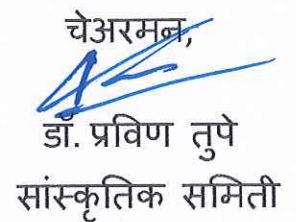 चेअरमन,
डॉ. प्रविण तुपे
सांस्कृतिक समिती